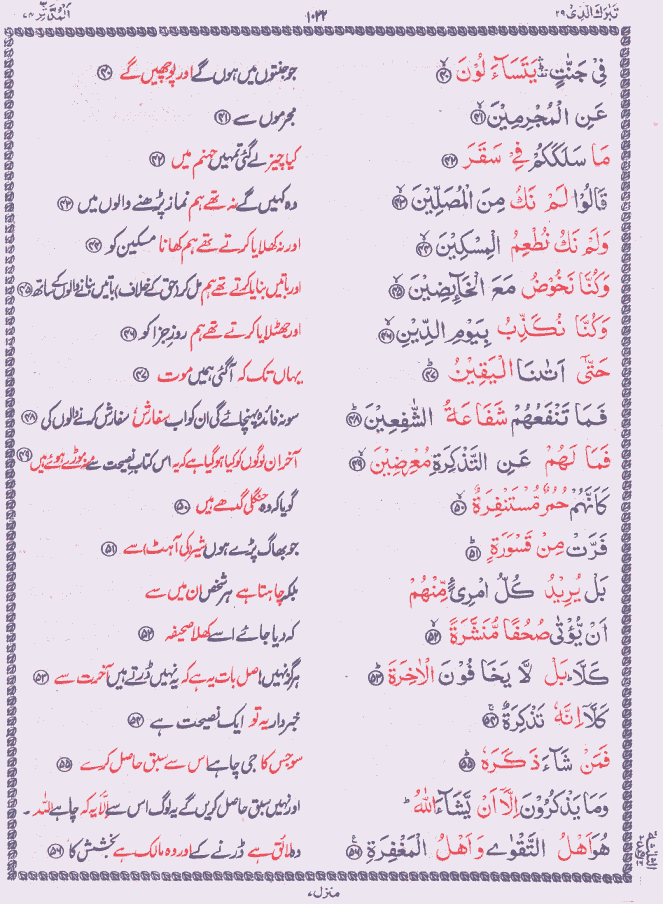 تَبٰرَكَ الَّذِیْ ۲۹ ۱۰۲۲ اَلْمُدَّثِّر ۷۴
فِیْ جَنّٰتٍ ۛ یَتَسَآءَلُوْنَ ۙ﴿۴۰﴾ جو جنتوں میں ہوں گے اور پوچھیں گے ﴿۴۰﴾
عَنِ الْمُجْرِمِیْنَ ۙ﴿۴۱﴾ مجرموں سے ﴿۴۱﴾
مَا سَلَكَكُمْ فِیْ سَقَرَ ﴿۴۲﴾ کیا چیز لے گئی تمہیں جہنم میں ﴿۴۲﴾
قَالُوْا لَمْ نَكُ مِنَ الْمُصَلِّیْنَ ۙ﴿۴۳﴾ وہ کہیں گے نہ تھے ہم نماز پڑھنے والوں میں ﴿۴۳﴾
وَلَمْ نَكُ نُطْعِمُ الْمِسْكِیْنَ ۙ﴿۴۴﴾ اور نہ کھلایا کرتے تھے ہم کھانا مسکین کو ﴿۴۴﴾
وَكُنَّا نَخُوْضُ مَعَ الْخَآىِٕضِیْنَ ۙ﴿۴۵﴾ اور باتیں بنایا کرتے تھے ہم مل کر (حق کے خلاف) باتیں بنانے والوں کے ساتھ ﴿۴۵﴾
وَكُنَّا نُكَذِّبُ بِیَوْمِ الدِّیْنِ ۙ﴿۴۶﴾ اور جھٹلایا کرتے تھے ہم روزِ جزا کو ﴿۴۶﴾
حَتّٰۤی اَتٰىنَا الْیَقِیْنُ ؕ﴿۴۷﴾ یہاں تک کہ آ گئی ہمیں موت ﴿۴۷﴾
فَمَا تَنْفَعُهُمْ شَفَاعَةُ الشّٰفِعِیْنَ ؕ﴿۴۸﴾ سو نہ فائدہ پہنچائے گی ان کو اب سفارش سفارش کرنے والوں کی ﴿۴۸﴾
فَمَا لَهُمْ عَنِ التَّذْكِرَةِ مُعْرِضِیْنَ ۙ﴿۴۹﴾ آخر ان لوگوں کو کیا ہو گیا ہے کہ یہ اس کتابِ نصیحت سے منہ موڑے ہوئے ہیں ﴿۴۹﴾
كَاَنَّهُمْ حُمُرٌ مُّسْتَنْفِرَةٌ ۙ﴿۵۰﴾ گویا کہ وہ جنگلی گدھے ہیں ﴿۵۰﴾
فَرَّتْ مِنْ قَسْوَرَةٍ ؕ﴿۵۱﴾ جو بھاگ پڑے ہوں شیر (کی آہٹ) سے ﴿۵۱﴾
بَلْ یُرِیْدُ كُلُّ امْرِئٍ مِّنْهُمْ بلکہ چاہتا ہے ہر شخص ان میں سے
اَنْ یُّؤْتٰی صُحُفًا مُّنَشَّرَةً ۙ﴿۵۲﴾ کہ دیا جائے اسے کھلا صحیفہ ﴿۵۲﴾
كَلَّا ؕ بَلْ لَّا یَخَافُوْنَ الْاٰخِرَةَ ؕ﴿۵۳﴾ ہرگز نہیں، اصل بات یہ ہے کہ یہ نہیں ڈرتے ہیں آخرت سے ﴿۵۳﴾
كَلَّاۤ اِنَّهٗ تَذْكِرَةٌ ۚ﴿۵۴﴾ خبردار یہ تو ایک نصیحت ہے ﴿۵۴﴾
فَمَنْ شَآءَ ذَكَرَهٗ ؕ﴿۵۵﴾ سو جس کا جی چاہے اس سے سبق حاصل کرے ﴿۵۵﴾
وَمَا یَذْكُرُوْنَ اِلَّاۤ اَنْ یَّشَآءَ اللّٰهُ ؕ اور نہیں سبق حاصل کریں گے یہ لوگ اس سے اِلّا یہ کہ چاہے اللہ۔
هُوَ اَهْلُ التَّقْوٰی وَاَهْلُ الْمَغْفِرَةِ ﴿۵۶﴾ وہ لائق ہے ڈرنے کے اور وہ مالک ہے بخشش کا ﴿۵۶﴾
منزل ۷